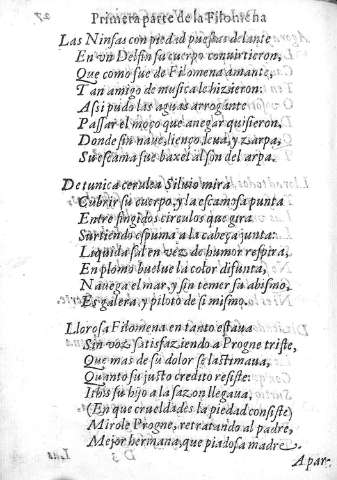 Primera parte de la Filomena
Las Ninfas con piedad puestas delante
En vn Delfin su cuerpo conuirtieron,
Que como fue de Filomena amante,
Tan amigo de musica le hizieron:
Assi pudo las aguas arrogante
Passar el moço que anegar quisieron,
Donde sin naue, lienço, leua, y zarpa,
Su escama fue baxel al son del arpa.
De tunica cerulea Siluio mira
Cubrir su cuerpo, y la escamosa punta
Entre fingidos circulos que gira
Surtiendo espuma a la cabeça junta:
Liquida sal en vez de humor respira,
En plomo buelue la color difunta,
Nauega el mar, y sin temer su abismo,
Es galera, y piloto de si mismo.
Llorosa Filomena en tanto estaua
Sin voz satisfaziendo a Progne triste,
Que mas de su dolor se lastimaua,
Quanto su justo credito resiste:
Ithis su hijo a la sazon llegaua,
(En que crueldades la piedad consiste)
Mirole Progne, retratando al padre,
Mejor hermana, que piadosa madre.
A par-